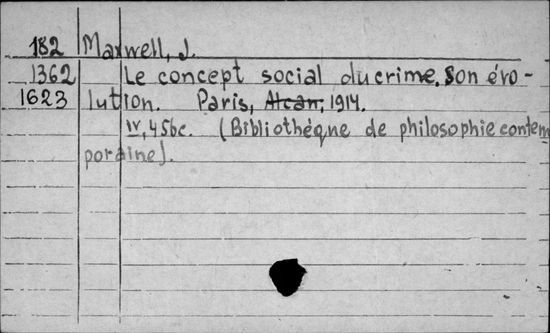 182 Maxwell, J.
1362 Le concept social du crime. Son évo-
1623 lution. Paris, Alcan, 1914.
IV, 456c. (Bibliothéqne de philosophie contem
poraine).